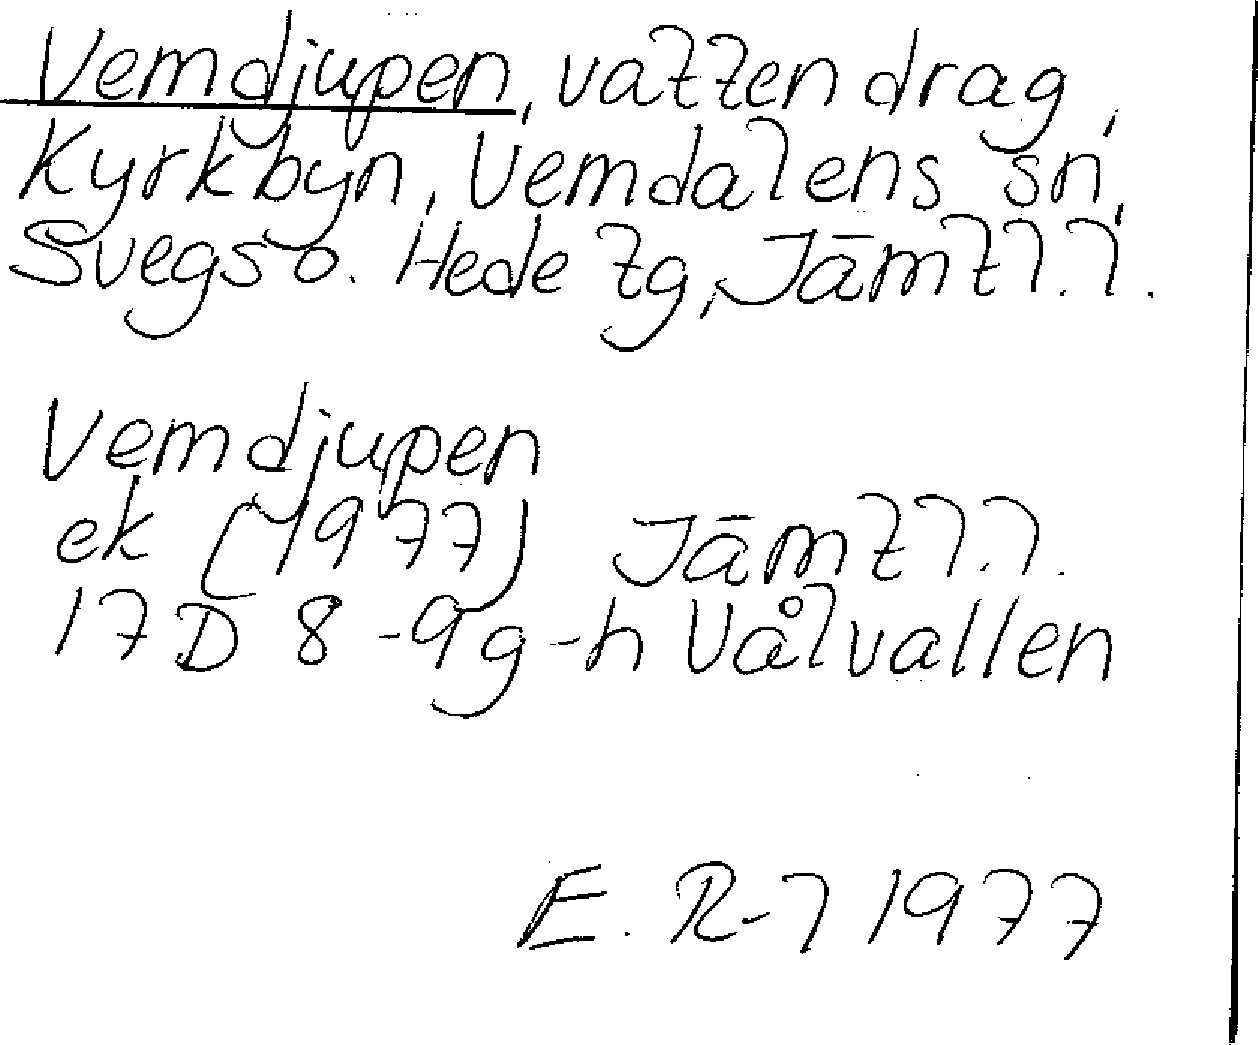 Vemdjupen, vattendrag,
Kyrkbyn, Vemdalens sn,
Svegs o. Hede tg, Jämtl. l.
Vemdjupen
ek (1977) Jämtl. l.
17D 8-9g-h Vålvallen
E. R-l 1977